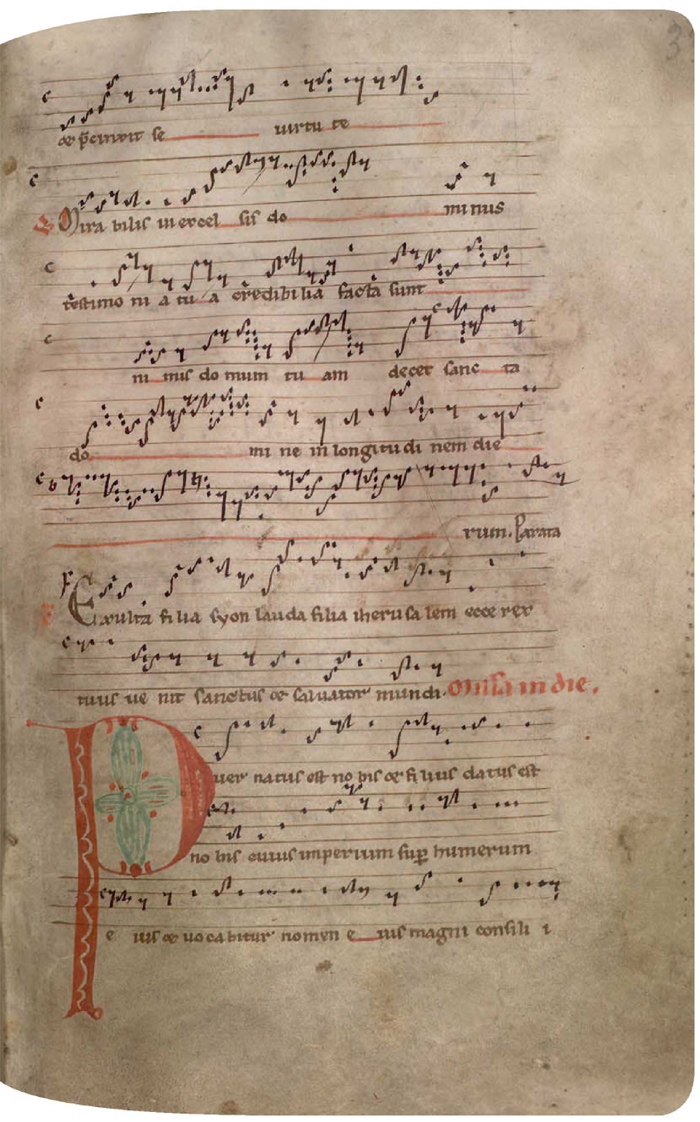 et p̄cinxit se uirtu te
Mira bilis in excel sis do minus
testimo ni a tu a credibi lia facta sunt
ni mis domum tu am decet sanc ta
do mi ne in longitu di nem die
rum. Parata
Exulta fi lia syon lauda filia iherusa lem ecce rex
tuus ue nit sanctus et saluator mundi. Missa in die.
Puer natus est no bis et fi lius datus est
no bis cuius imperium sup humerum
e ius et uo ca bitur nomen e ius magni consili i